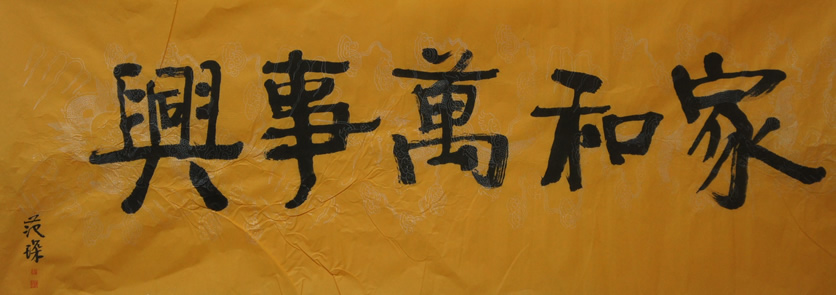 家和萬事興
范琛